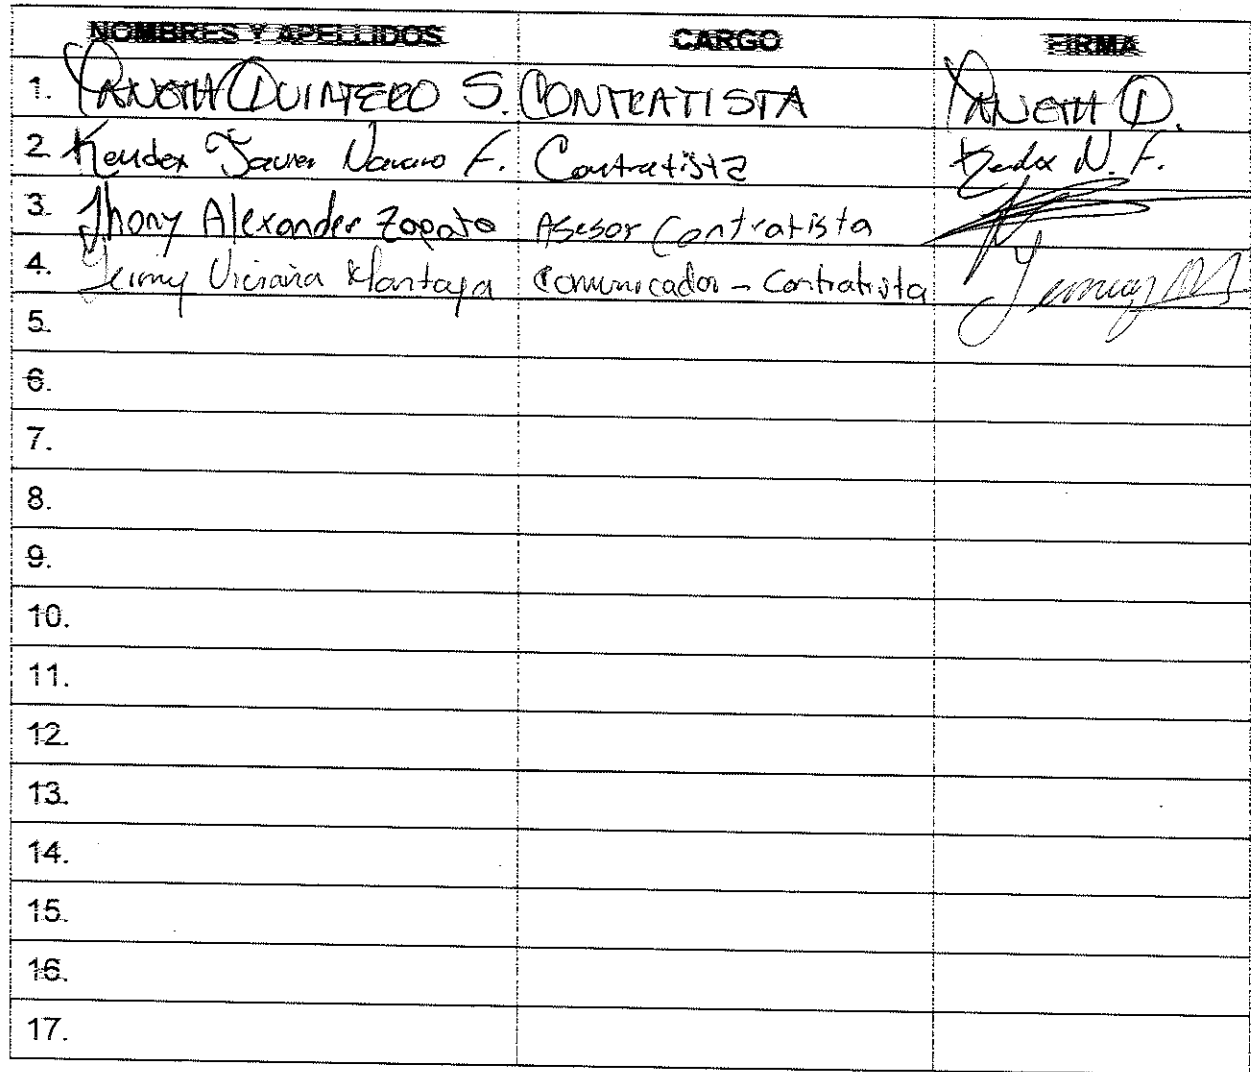 NOMBRES Y APELLIDOS CARGO FIRMA
1. YANETH QUINTERO S. CONTRATISTA YANETH Q.
2. Kender Javier Navarro F. Contratista Kender N. F.
3. Jhony Alexander Zapata Asesor Contratista
4. Jeimy Viviana Comunicador - Contratista
5.
6.
7.
8.
9.
10.
11.
12.
13.
14.
15.
16.
17.